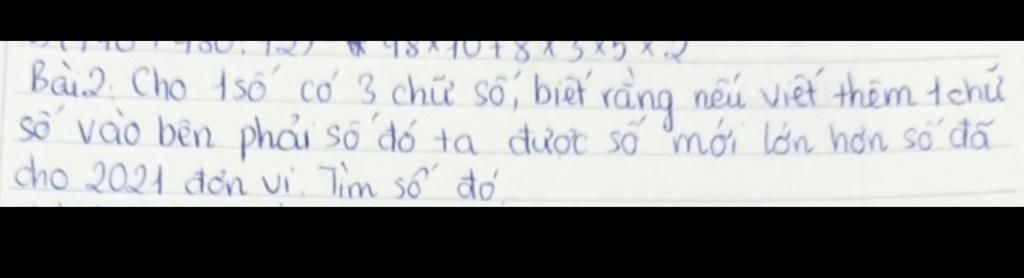 48×10+8×5×5×2
Bài 2. Cho 1 số có 3 chữ số, biết rằng nếu viết thêm 1 chữ
số vào bên phải số đó ta được số mới lớn hơn số đã
cho 2021 đơn vị. Tìm số đó